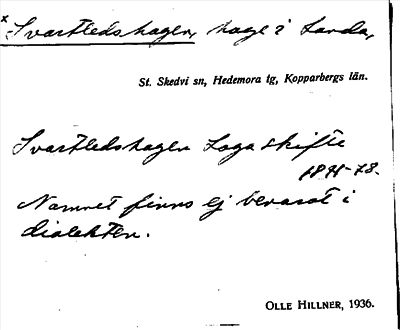 x Svartledshagen, hage i Landa,
St. Skedvi sn, Hedemora tg, Kopparbergs län.
Svartledshagen Laga skifte
Namnet finns ej bevarat i
dialekten.
OLLE HILLNER, 1936.